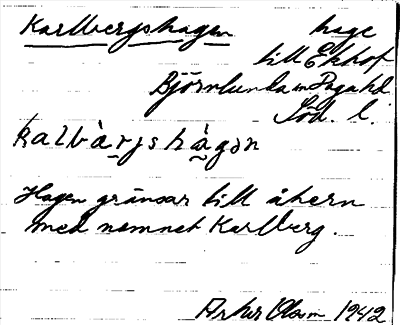 Karlbergshagen hage
till Ekhof
Björnlunda sn Daga hd
Söd. l.
kalbàrjshàgən
Hagen gränsar till åkern
med namnet Karlberg.
1942